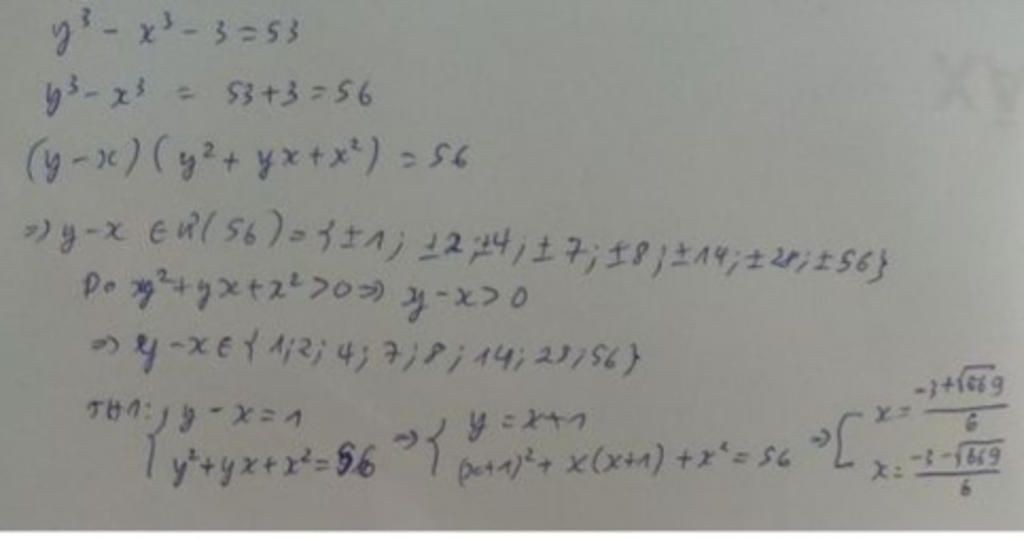 y³ - x³ - 3 = 53
y³ - x³ = 53 + 3 = 56
(y - x)(y² + yx + x²) = 56
=> y - x ∈ Ư(56) = {±1; ±2; ±4; ±7; ±8; ±14; ±28; ±56}
Do y² + yx + x² > 0 => y - x > 0
=> y - x ∈ {1; 2; 4; 7; 8; 14; 28; 56}
TH1: { y - x = 1 => { y = x + 1 => [ x = (-3 + √669)/6
y² + yx + x² = 56 (x+1)² + x(x+1) + x² = 56 x = (-3 - √669)/6